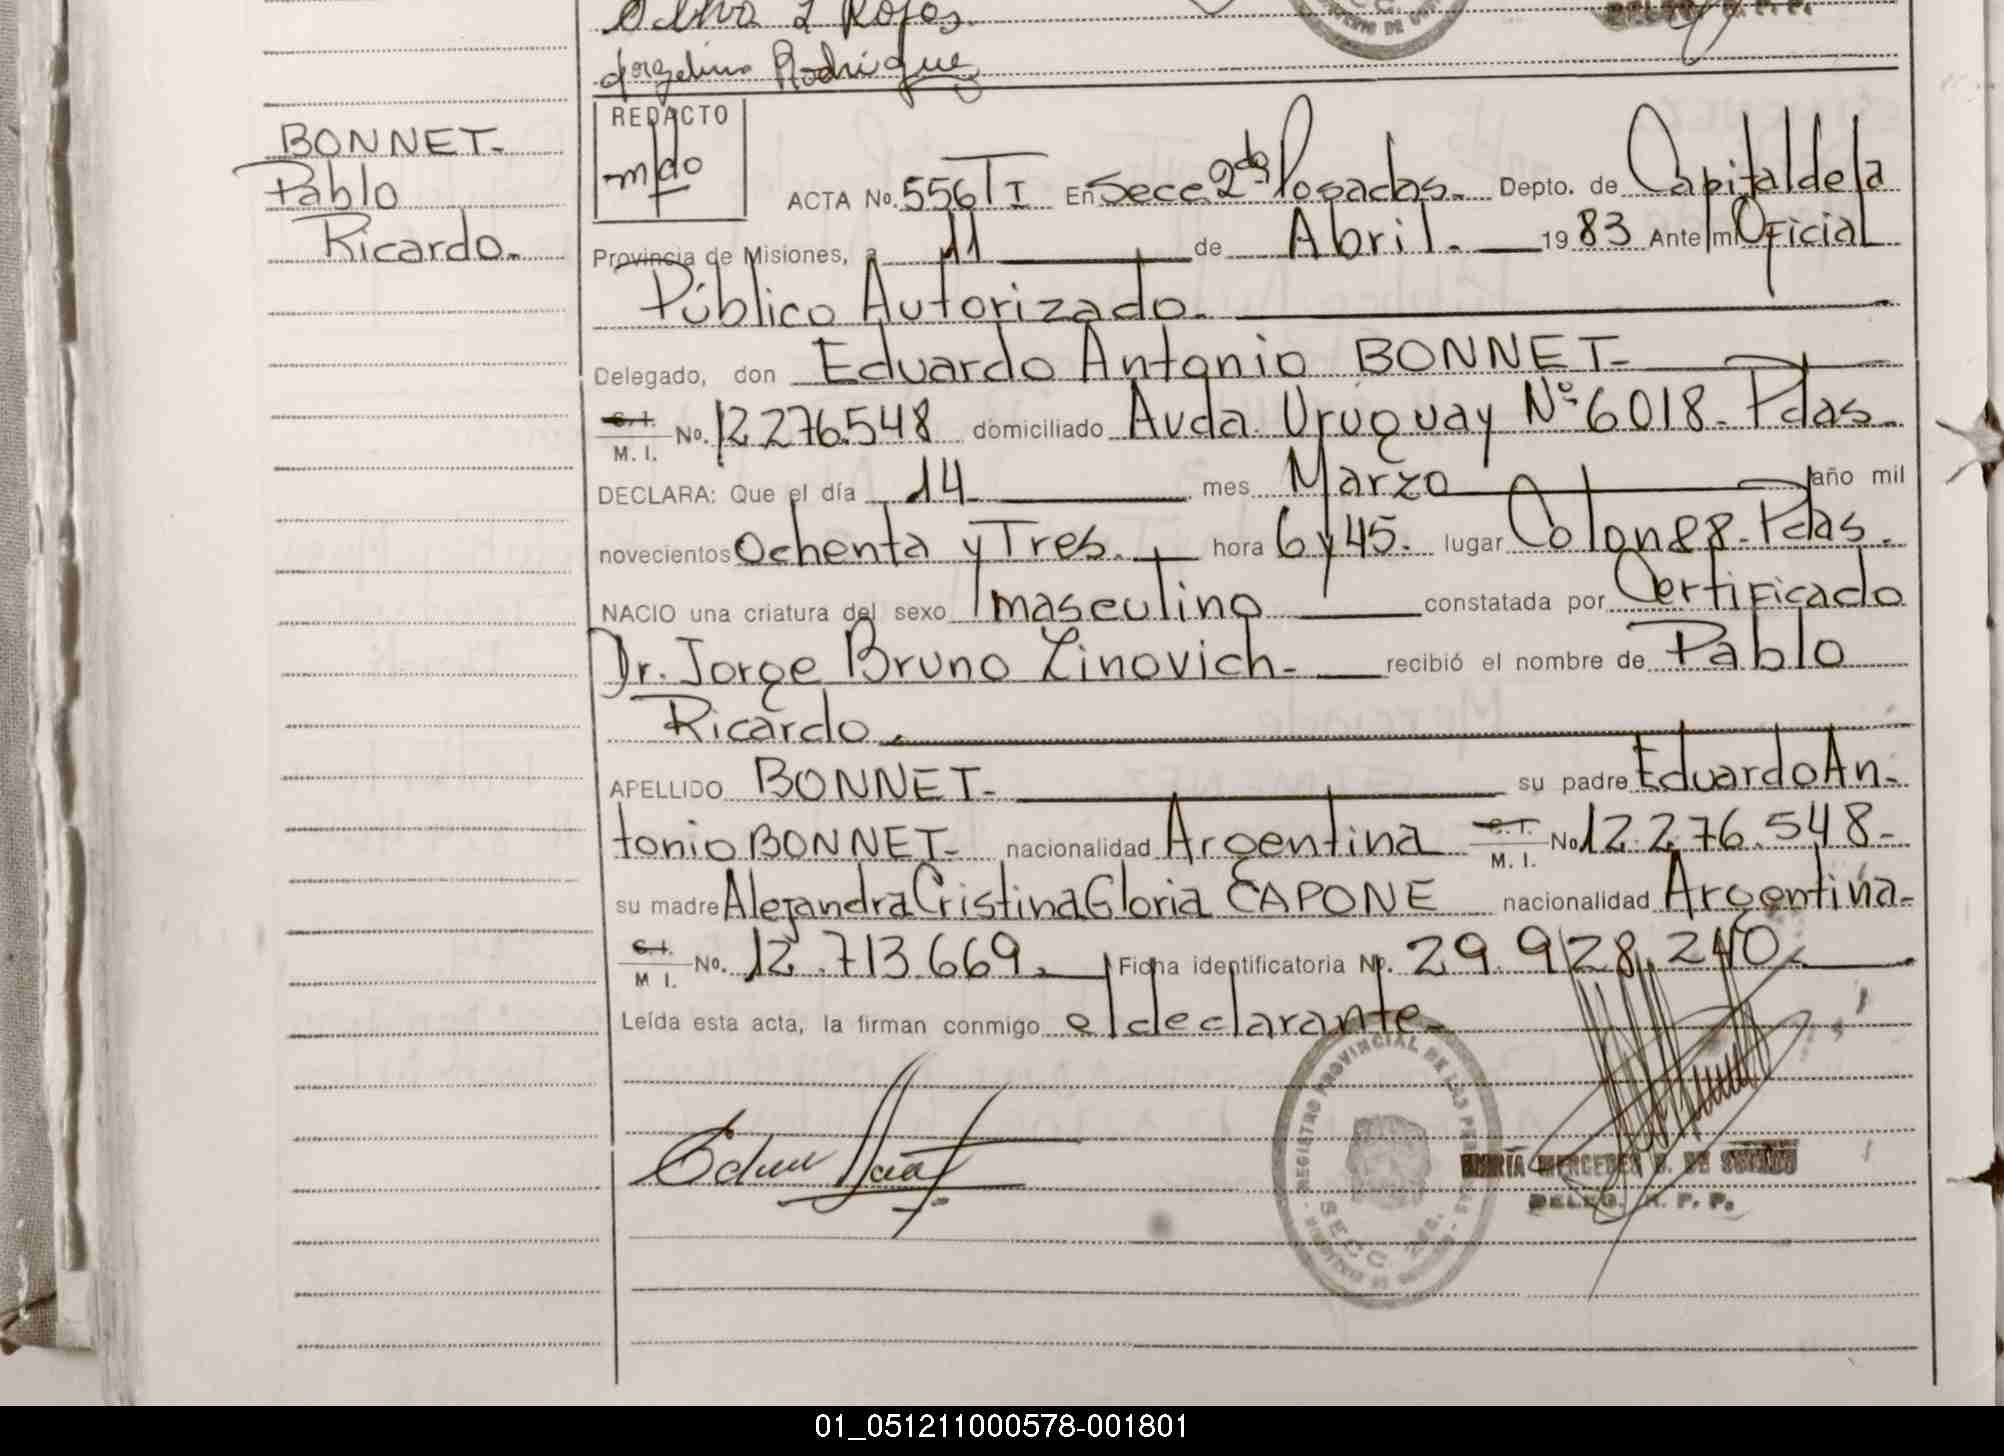 Rojas.
Rodrigue
BONNET-
Pablo
Ricardo.
REDACTO
m/do
ACTA No. 556 T I En Secc. 2da Posadas. Depto. de Capital de la
Provincia de Misiones, a 11 de Abril. 1983 Ante mi Oficial
Público Autorizado.
Delegado, don Eduardo Antonio BONNET-
C. I. M. I. No. 12.276.548 domiciliado Avda. Uruguay Nº 6018. Pdas.
DECLARA: Que el día 14 mes Marzo año mil
novecientos Ochenta y Tres. hora 6 y 45. lugar Colon 88. Pdas.
NACIO una criatura del sexo masculino constatada por Certificado
Dr. Jorge Bruno Zinovich- recibió el nombre de Pablo
Ricardo.
APELLIDO BONNET- su padre Eduardo An-
tonio BONNET- nacionalidad Argentina C. I. M. I. No. 12.276.548-
su madre Alejandra Cristina Gloria CAPONE nacionalidad Argentina-
C. I. M I. No. 12.713.669. Ficha identificatoria No. 29.928.240.
Leída esta acta, la firman conmigo el declarante-
REGISTRO PROVINCIAL DE LAS PERSONAS
SECC. 2da.
MARÍA MERCEDES
DELEG. R. P. P.
01_051211000578-001801